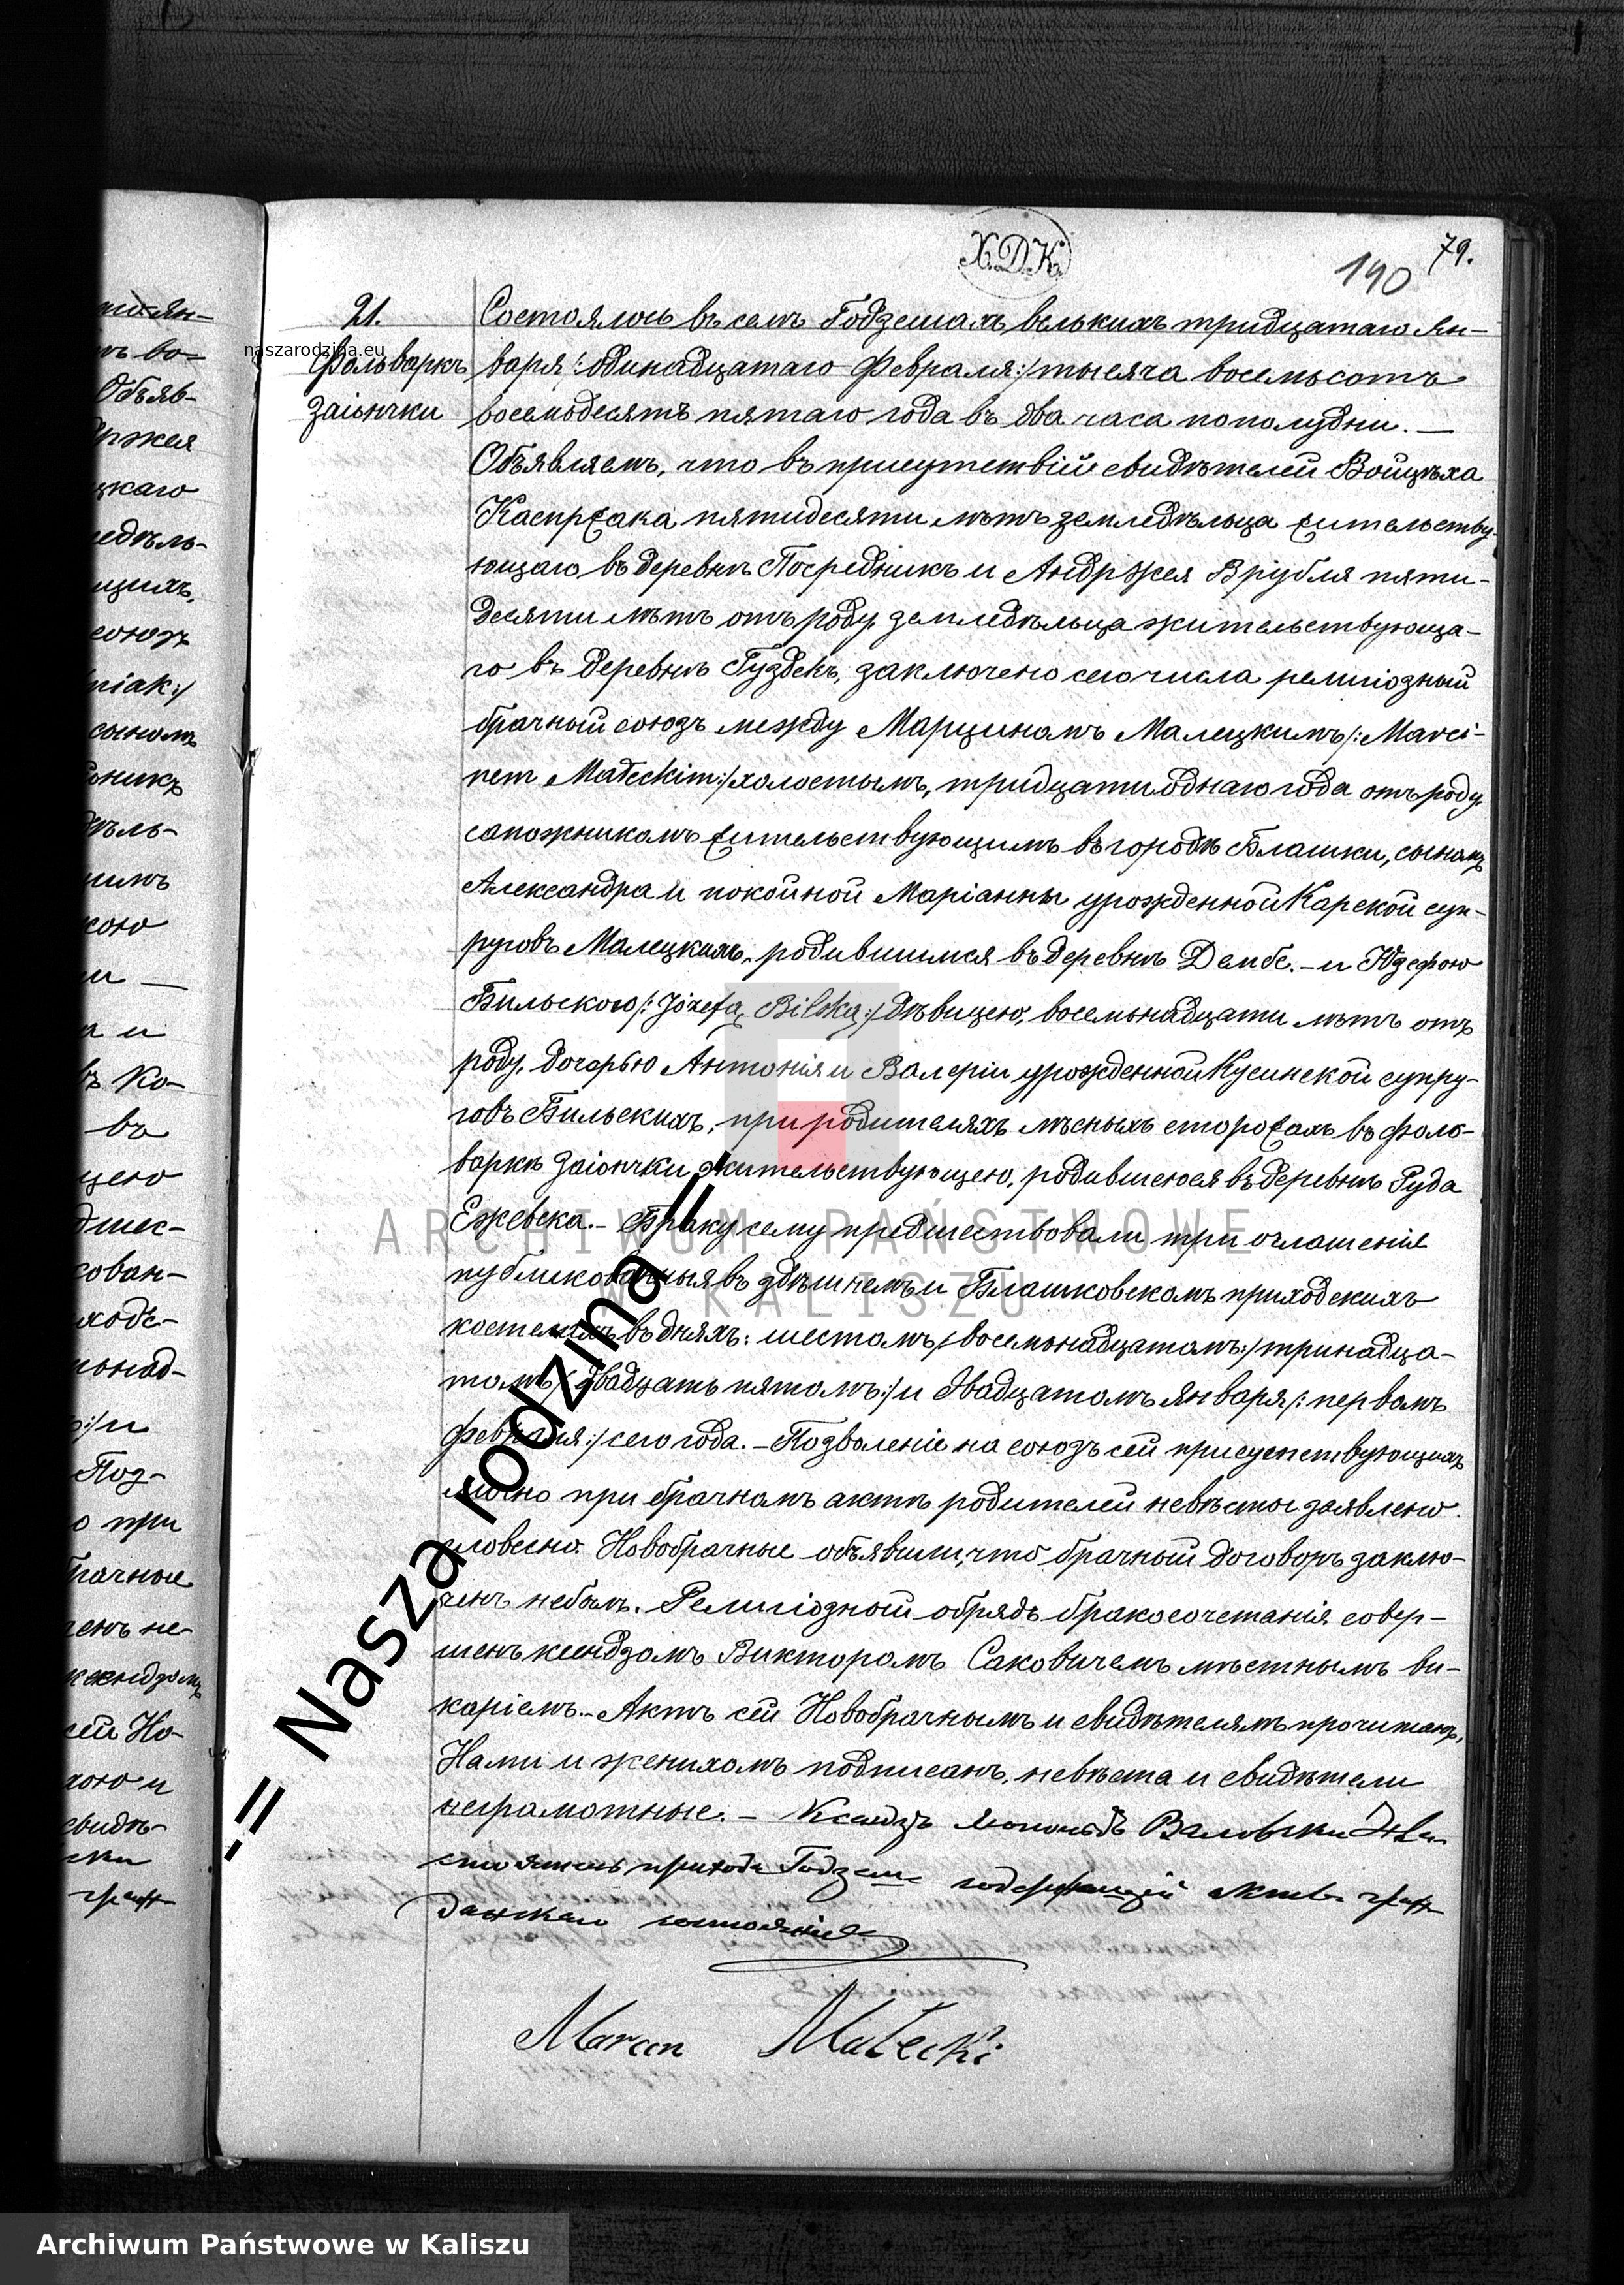 Х.Д.К.
190
79.
21.
Фольваркъ
Заіончки
Состоялось въ селѣ Годзешахъ велькихъ тридцатаго Ян-
варя /:одинадцатаго Февраля:/ тысяча восемьсотъ
восемьдесятъ пятаго года въ два часа пополудни. —
Объявляемъ, что въ присутствіи свидѣтелей Войцѣха
Каспржака пятидесяти лѣтъ земледѣльца жительству-
ющаго въ деревнѣ Посредникъ и Андржея Врубля пяти-
десяти лѣтъ отъ роду земледѣльца жительствующа-
го въ деревнѣ Гуздекъ, заключено сего числа религіозный
брачный союзъ между Марциномъ Малецкимъ /:Marci-
nem Małeckim:/ холостымъ, тридцати однаго года отъ роду
сапожникомъ жительствующимъ въ городѣ Блашки, сыномъ
Александра и покойной Маріанны урожденной Карской суп-
руговъ Малецкихъ, родившимся въ деревнѣ Дембе. – и Юзефою
Бильскою /:Józefą Bilską:/ дѣвицею, восемьнадцати лѣтъ отъ
роду, дочерью Антонія и Валеріи урожденной Кусинской супру-
говъ Бильскихъ, при родителяхъ лѣсныхъ сторожахъ въ фоль-
варкѣ Заіончки жительствующею, родившеюся въ деревнѣ Руда
Ежевска. – Браку сему предшествовали три оглашенія
публикованныя въ здѣшнемъ и Блашковскомъ приходскихъ
костелахъ въ дняхъ: шестомъ /:восемьнадцатомъ:/ тринадца-
томъ /:двадцать пятомъ:/ и двадцатомъ Января /:первомъ
Февраля:/ сего года. – Позволеніе на союзъ сей присутствующихъ
лично при брачномъ актѣ родителей невѣсты заявлено
словесно. Новобрачные объявили, что брачный договоръ заклю-
ченъ небылъ. Религіозный обрядъ бракосочетанія совер-
шенъ ксендзомъ Викторомъ Саковичемъ мѣстнымъ ви-
каріемъ. – Актъ сей Новобрачнымъ и свидѣтелямъ прочитанъ,
Нами и женихомъ подписанъ, невѣста и свидѣтели
неграмотные. – Ксендзъ Леопольдъ Валовски На-
стоятель прихода Годзеш содержащій Акты граж
данскаго состоянія
Marcin Małecki
naszarodzina.eu
-= Nasza rodzina =-
ARCHIWUM PAŃSTWOWE
W KALISZU
Archiwum Państwowe w Kaliszu